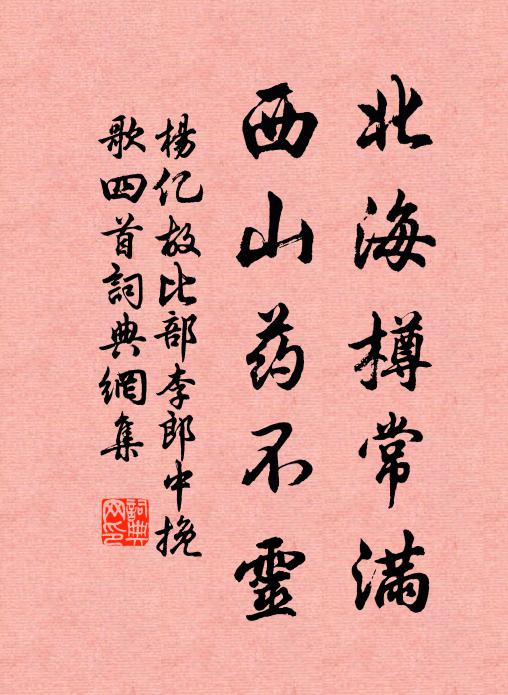 北海樽常滿
西山药不靈
楊亿故比部李郎中挽
歌四首詞典網集
詞典网印